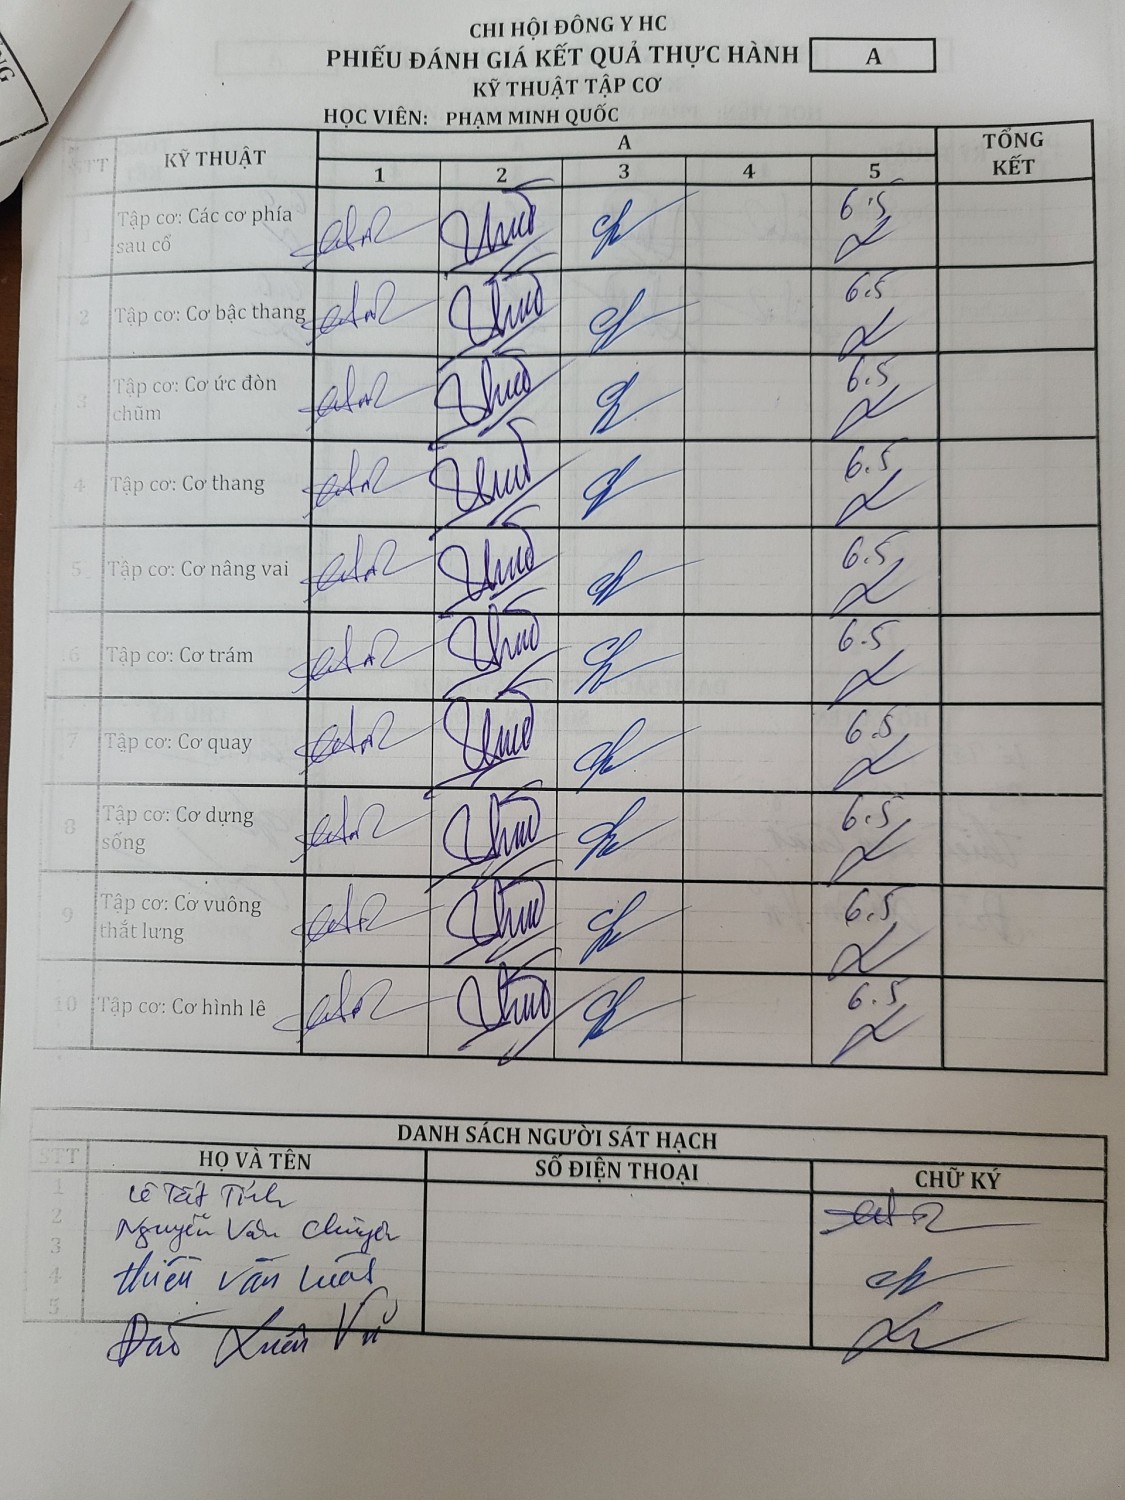 CHI HỘI ĐÔNG Y HC
PHIẾU ĐÁNH GIÁ KẾT QUẢ THỰC HÀNH A
KỸ THUẬT TẬP CƠ
HỌC VIÊN: PHẠM MINH QUỐC
STT KỸ THUẬT A TỔNG KẾT
1 2 3 4 5
Tập cơ: Các cơ phía sau cổ 6.5
2 Tập cơ: Cơ bậc thang 6.5
3 Tập cơ: Cơ ức đòn chũm 6.5
4 Tập cơ: Cơ thang 6.5
5 Tập cơ: Cơ nâng vai 6.5
6 Tập cơ: Cơ trám 6.5
7 Tập cơ: Cơ quay 6.5
8 Tập cơ: Cơ dựng sống 6.5
9 Tập cơ: Cơ vuông thắt lưng 6.5
10 Tập cơ: Cơ hình lê 6.5
DANH SÁCH NGƯỜI SÁT HẠCH
STT HỌ VÀ TÊN SỐ ĐIỆN THOẠI CHỮ KÝ
1 Lê Tất Tính
2 Nguyễn Văn Chuyên
3
4 Thiều Văn Luật
5
Đào Xuân Vũ